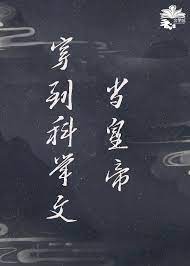 穿到科举文
当皇帝